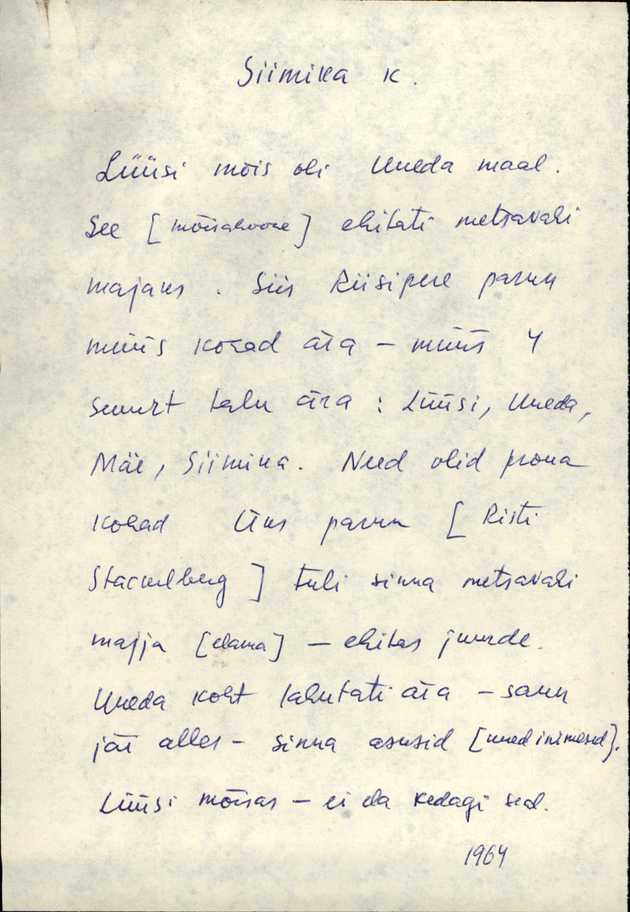 Siimika k.
Lüüsi mõis oli Uueda maal.
See [mõisahoone] ehitati metsavahi
majaks. Siis Riisipere parun
müüs kohad ära – müüs 4
suurt talu ära : Lüüsi, Uueda,
Mäe, Siimika. Need olid
kohad Üks parun [Risti
Stackelberg] tuli sinna metsavahi
majja [elama] – ehitas juurde.
Uueda koht lahutati ära – saun
jäi alles – sinna asusid [uued inimesed].
Lüüsi mõisas – ei ela kedagi seal.
1964